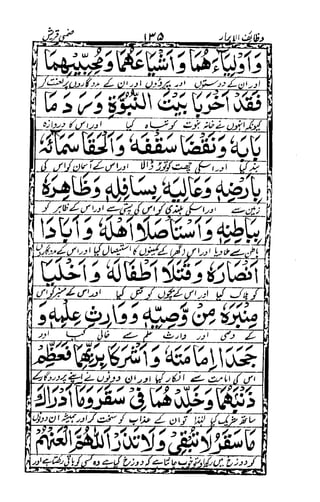 وظائف الابرار ۱۳۵ صنمی قریش
وَاَوْلِیَآءَهُمَا وَاَشْیَاعَهُمَا وَمُحِبِّیْهِمَا
اور ان کے دوستوں اور پیروؤں اور ان کے مددگاروں پر لعنت کر
فَقَدْ اَخْرَبَا بَیْتَ النُّبُوَّةِ وَرَدَمَا
کیونکہ انہوں نے خانہ نبوت کو تباہ کیا اور اس کا دروازہ
بَابَهٗ وَنَقَضَا سَقْفَهٗ وَاَلْحَقَا سَمَآئَهٗ
بند کیا اور اسکی چھت کو توڑ ڈالا اور اس کے آسمان کو اس کی
بِاَرْضِهٖ وَعَالِیَهٗ بِسَافِلِهٖ وَظَاهِرَهٗ
زمین سے اور اسکی بلندی کو اس کی پستی سے اور اس کے ظاہر کو
بِبَاطِنِهٖ وَاسْتَاصَلَا اَهْلَهٗ وَاَبَادَا
باطن سے ملا دیا اور اس (گھر) کے مکینوں کا استیصال کیا اور اس کے مددگاروں
اَنْصَارَهٗ وَقَتَلَا اَطْفَالَهٗ وَاَخْلَیَا
کو ہلاک کیا اور اس کے بچوں کو قتل کیا اور اس کے منبر کو اس
مِنْبَرَهٗ مِنْ وَصِیِّهٖ وَوَارِثِ عِلْمِهٖ وَ
کے وصی اور وارث علم سے خالی کیا اور
جَحَدَا اِمَامَتَهٗ وَاَشْرَکَا بِرَبِّهِمَا فَعَظِّمْ
اس کی امامت سے انکار کیا اور ان دونوں نے اپنے پروردگار کے
ذَنْبَهُمَا وَخَلِّدْهُمَا فِیْ سَقَرَ وَمَا اَدْرٰکَ
ساتھ شریک کیا لہٰذا تو ان کے عذاب کو سخت کر اور ہمیشہ ان دونوں
مَا سَقَرُ لَا تُبْقِیْ وَلَا تَذَرُ اَللّٰهُمَّ الْعَنْهُمْ
کو دوزخ میں رکھ اور تو خوب جانتا ہے کہ دوزخ کیا ہے وہ کسی کو باقی رکھتا ہے اور